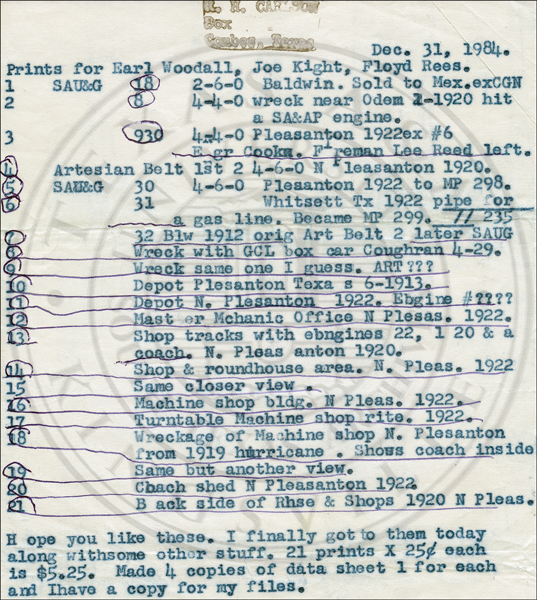 R. H. CARLSON
Box
Dec. 31, 1984.
Prints for Earl Woodall, Joe Kight, Floyd Rees.
1 SAU&G 18 2-6-0 Baldwin. Sold to Mex.exCGN
2 8 4-4-0 wreck near Odem 1-1920 hit
a SA&AP engine.
3 930 4-4-0 Pleasanton 1922ex #6
E gr Cooks. F'reman Lee Reed left.
4 Artesian Belt 1st 2 4-6-0 N Pleasanton 1920.
5 SAU&G 30 4-6-0 Plesanton 1922 to MP 298.
6 31 Whitsett Tx 1922 pipe for
a gas line. Became MP 299. // 235
7 32 Blw 1912 orig Art Belt 2 later SAUG
8 Wreck with GCL box car Coughran 4-29.
9 Wreck same one I guess. ART???
10 Depot Plesanton Texa s 6-1913.
11 Depot N. Plesanton 1922. Ebgine #????
12 Mast er Mchanic Office N Plesas. 1922.
13 Shop tracks with ebngines 22, 1 20 & a
coach. N. Pleas anton 1920.
14 Shop & roundhouse area. N. Pleas. 1922
15 Same closer view .
16 Machine shop bldg. N Pleas. 1922.
17 Turntable Machine shop rite. 1922.
18 Wreckage of Machine shop N. Plesanton
from 1919 hurricane . Shows coach inside
19 Same but another view.
20 Coach shed N Pleasanton 1922
21 B ack side of Rhse & Shops 1920 N Pleas.
H ope you like these. I finally got to them today
along withsome other stuff. 21 prints X 25¢ each
is $5.25. Made 4 copies of data sheet 1 for each
and Ihave a copy for my files.